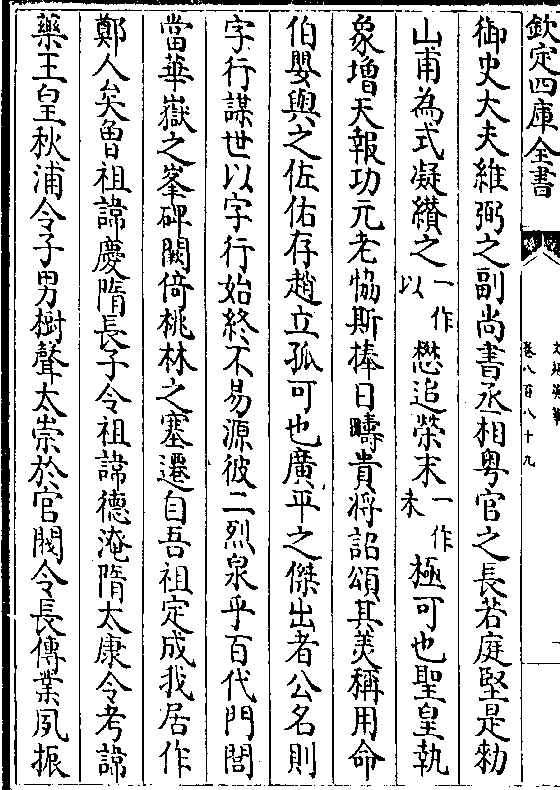 欽定四庫全書
卷八百八十九
御史大夫維弼之副尚書丞相粵官之長若庭堅是勑
山甫為式凝纘之一作以懋追榮末一作未極可也聖皇執
象增天報功元老恊斯捧日疇貴將詔頌其美稱用命
伯嬰與之佐佑存趙立孤可也廣平之傑出者公名則
字行謀世以字行始終不易源彼二烈泉乎百代門閭
當華嶽之峯碑闕倚桃林之塞遷自吾祖定成我居作
鄭人矣魯祖諱慶隋長子令祖諱德淹隋太康令考諱
藥王皇秋浦令子男樹聲太崇於官閥令長傳業夙振